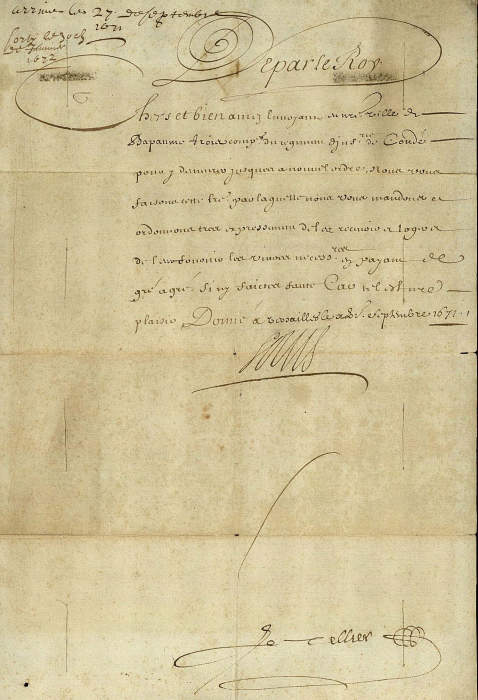 arrivé le 27 de septembre
1671
Sorty le
1672
De par le Roy
Chers et bien amez Envoyant en nre ville de
Bapaume trois comp.es du regiment d'Inf.rie de Condé
pour y demeurer jusques a nouvel ordre, Nous vous
faisons cette lre. par laquelle nous vous mandons et
ordonnons tres expressement de les recevoir et loger et
de leur fournir les vivres necess.res en payant de
gré à gré. Si n'y faictes faute Car tel est nre
plaisir. Donné à Versailles le septembre 1671.
Louis
Le Tellier